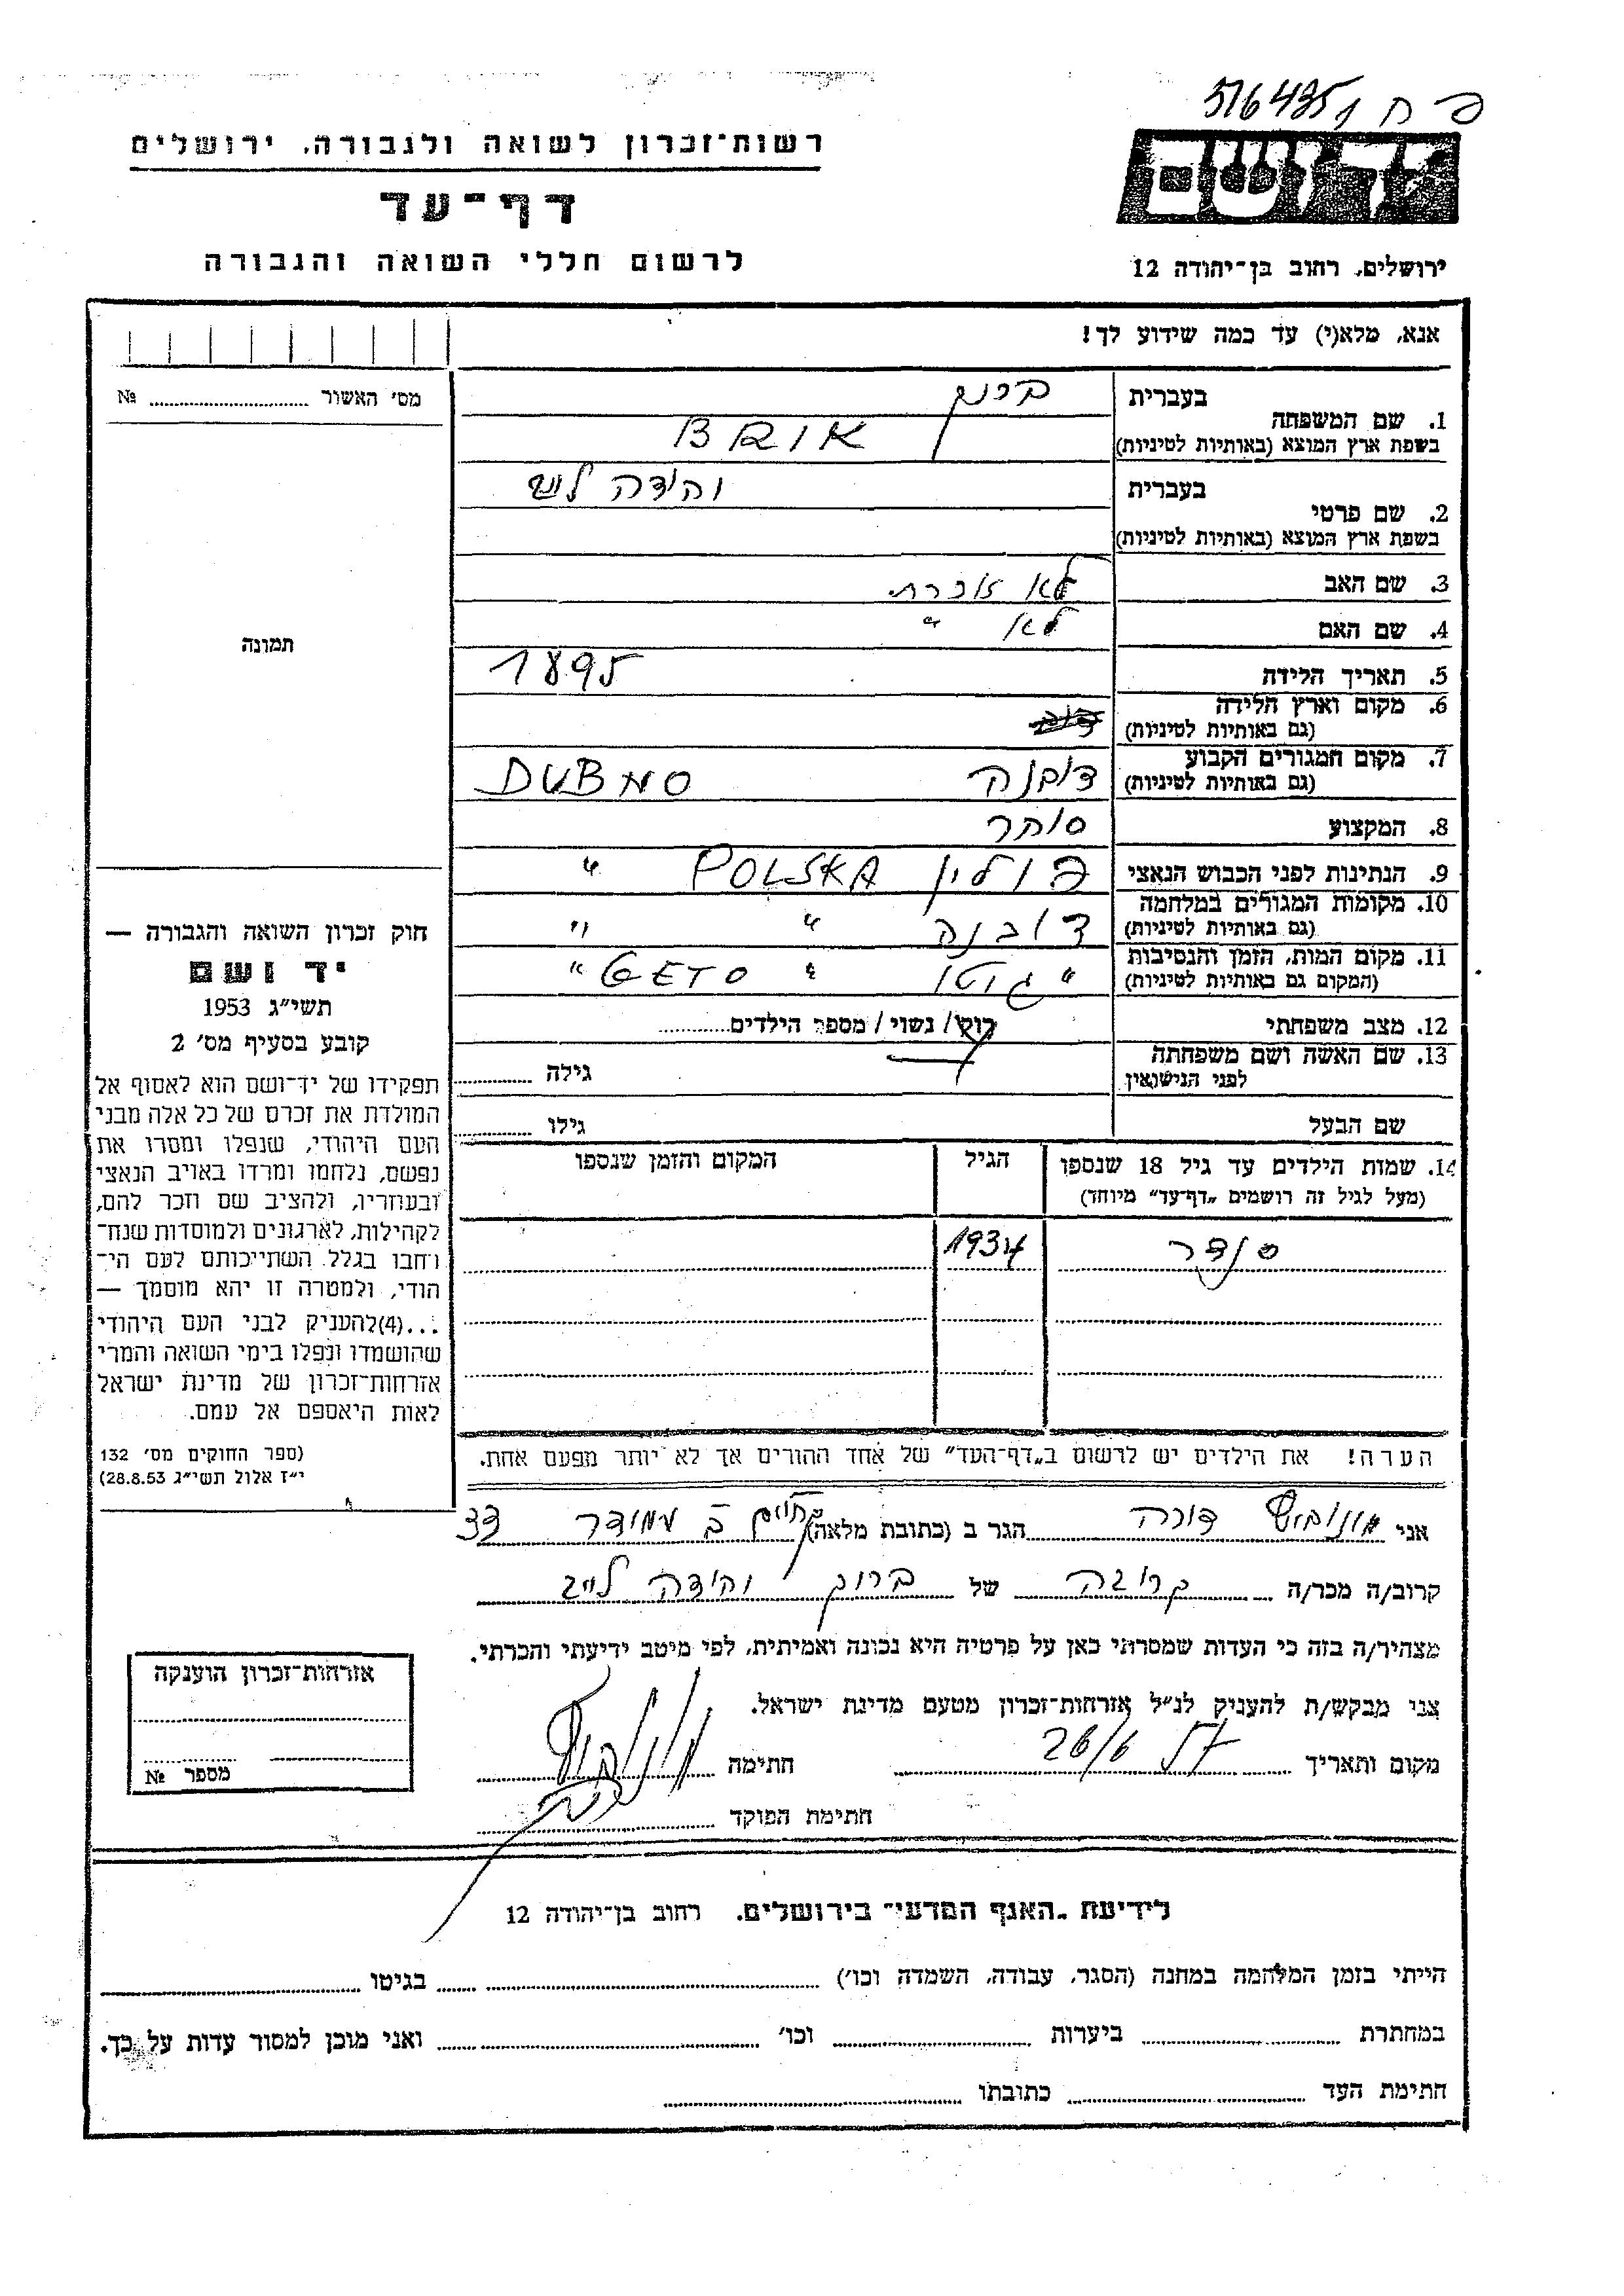 פ ח 516435/1
יד ושם
רשות־זכרון לשואה ולגבורה, ירושלים
דף־עד
לרשום חללי השואה והגבורה
ירושלים, רחוב בן־יהודה 12
אנא, מלא(י) עד כמה שידוע לך!
מס׳ האשור № 
1. שם המשפחה בעברית ברוק
בשפת ארץ המוצא (באותיות לטיניות)
2. שם פרטי בעברית יהודה ליב
בשפת ארץ המוצא (באותיות לטיניות)
3. שם האב לא זוכרת
4. שם האם לא "
5. תאריך הלידה 1895
6. מקום וארץ הלידה
(גם באותיות לטיניות)
7. מקום המגורים הקבוע דובנה DUBNO
(גם באותיות לטיניות)
8. המקצוע סוחר
9. הנתינות לפני הכבוש הנאצי פולין POLSKA "
10. מקומות המגורים במלחמה דובנה " "
(גם באותיות לטיניות)
11. מקום המות, הזמן והנסיבות "גיטו " GETO "
(המקום גם באותיות לטיניות)
12. מצב משפחתי רוק/ נשוי / מספר הילדים
13. שם האשה ושם משפחתה
לפני הנישואין גילה
שם הבעל גילו
14. שמות הילדים עד גיל 18 שנספו הגיל המקום והזמן שנספו
(מעל לגיל זה רושמים „דף־עד" מיוחד)
סנדר 1934
הערה! את הילדים יש לרשום ב„דף־העד" של אחד ההורים אך לא יותר מפעם אחת.
תמונה
חוק זכרון השואה והגבורה —
יד ושם
תשי״ג 1953
קובע בסעיף מס׳ 2
תפקידו של יד־ושם הוא לאסוף אל
המולדת את זכרם של כל אלה מבני
העם היהודי, שנפלו ומסרו את
נפשם, נלחמו ומרדו באויב הנאצי
ובעוזריו, ולהציב שם וזכר להם,
לקהילות, לארגונים ולמוסדות שנח־
רחבו בגלל השתייכותם לעם הי־
הודי, ולמטרה זו יהא מוסמך —
...(4)להעניק לבני העם היהודי
שהושמדו ונפלו בימי השואה והמרי
אזרחות־זכרון של מדינת ישראל
לאות היאספם אל עמם.
(ספר החוקים מס׳ 132
י״ז אלול תשי״ג 28.8.53)
אני דורה הגר ב (כתובת מלאה) 33
קרוב/ה מכר/ה קרובה של ברוק יהודה לייב
מצהיר/ה בזה כי העדות שמסרתי כאן על פרטיה היא נכונה ואמיתית, לפי מיטב ידיעתי והכרתי.
אני מבקש/ת להעניק לנ״ל אזרחות־זכרון מטעם מדינת ישראל.
מקום ותאריך 26/6 חתימה
חתימת הפוקד
אזרחות־זכרון הוענקה
מספר №
לידיעת „האגף המדעי" בירושלים, רחוב בן־יהודה 12
הייתי בזמן המלחמה במחנה (הסגר, עבודה, השמדה וכו׳) בגיטו
במחתרת ביערות וכו׳ ואני מוכן למסור עדות על כך.
חתימת העד כתובתו